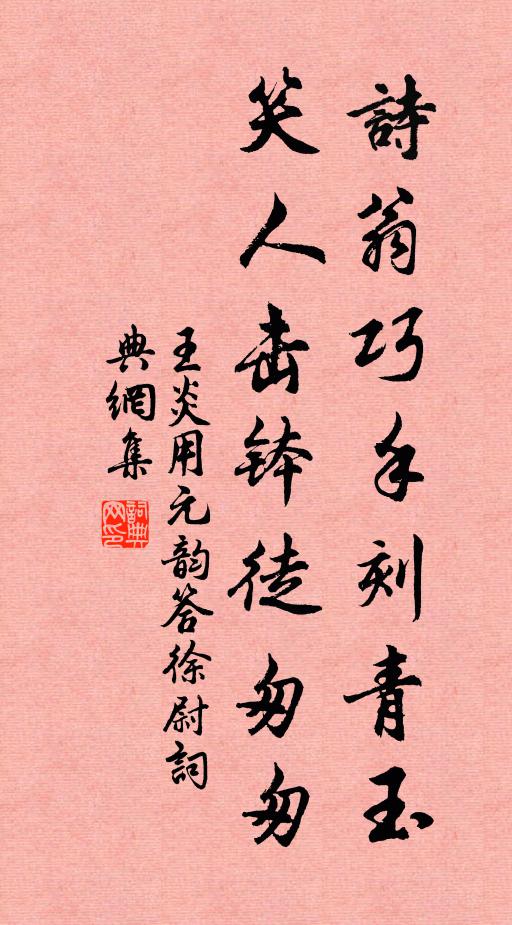 詩翁巧手刻青玉
笑人击钵徒匆匆
王炎用元韵答徐尉詞
典網集
詞典
网印